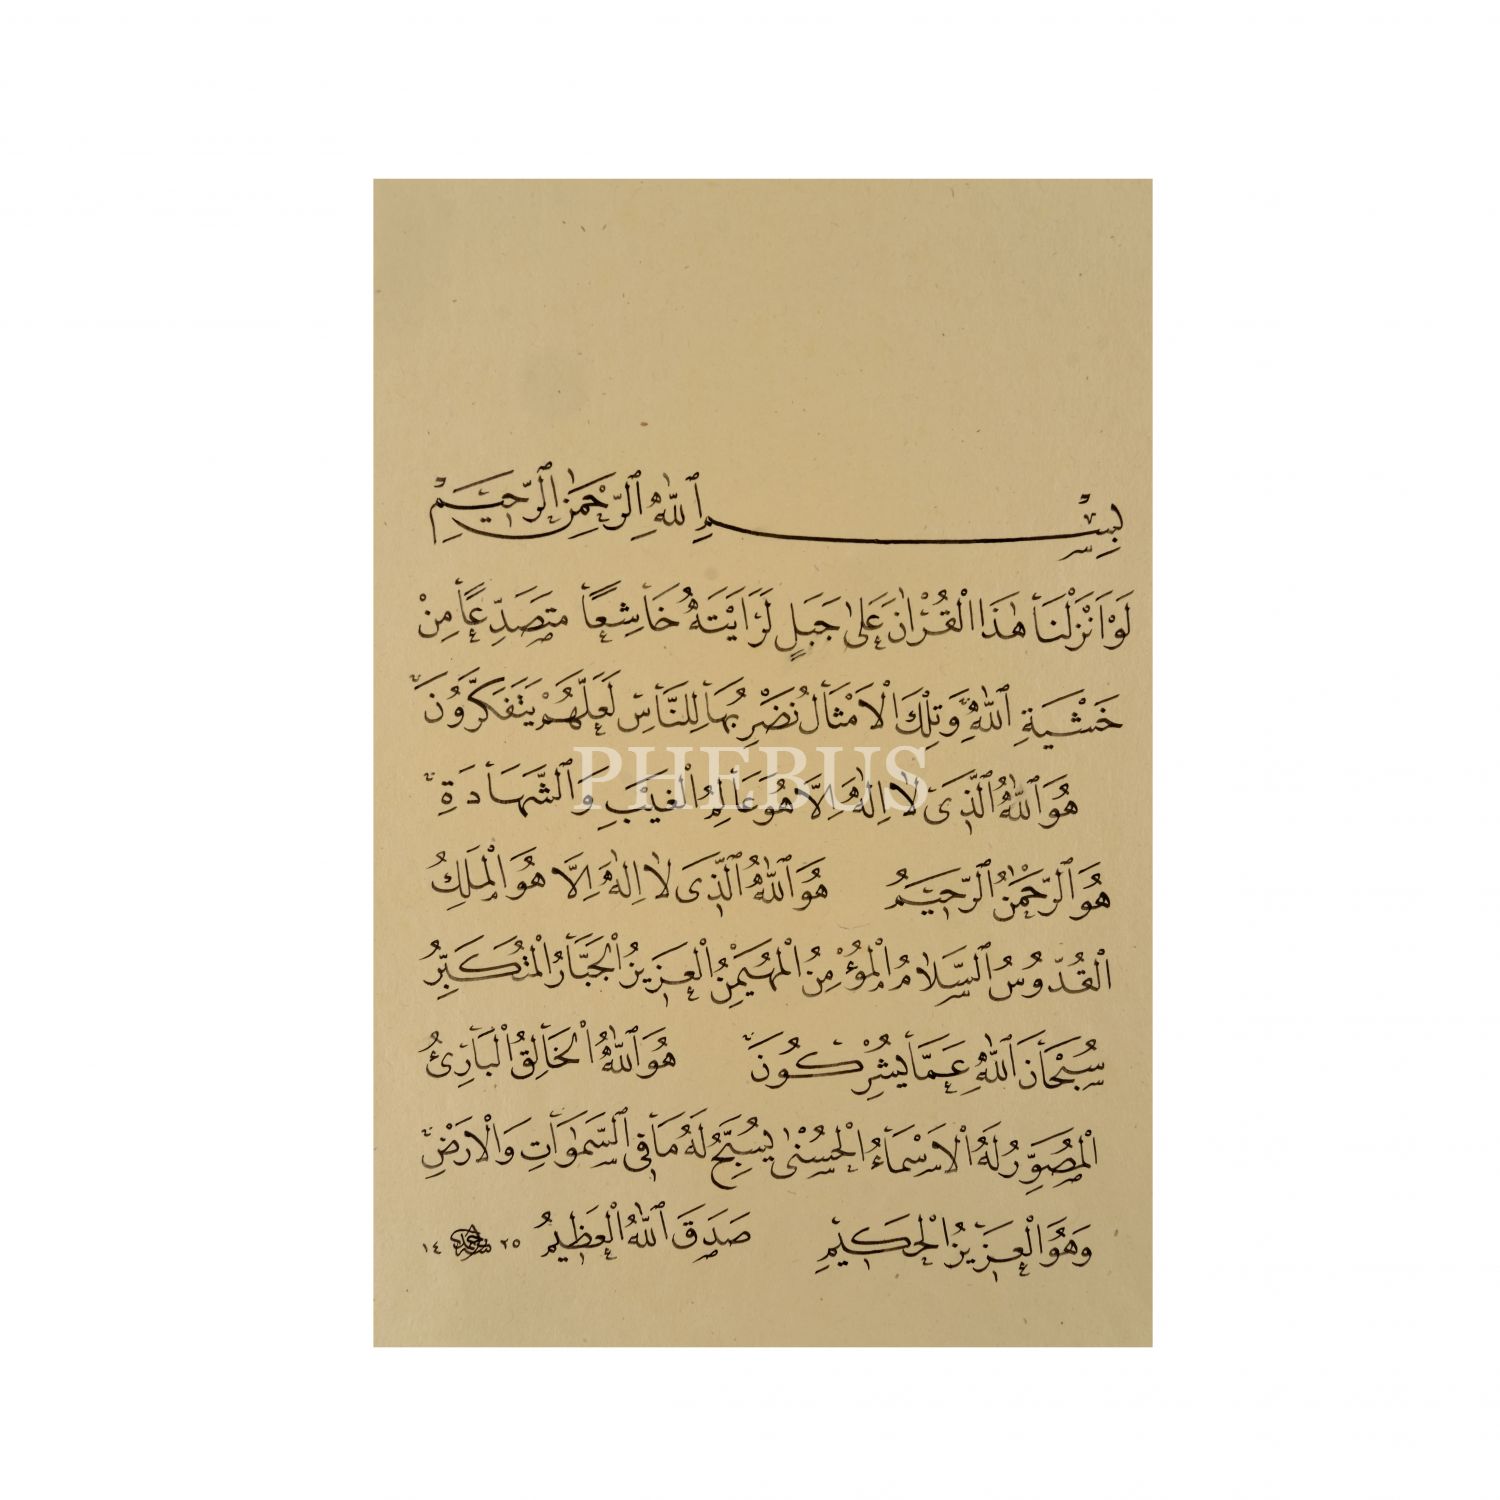 بِسْمِ ٱللّٰهِ ٱلرَّحْمٰنِ ٱلرَّحِيمِ
لَوْ اَنْزَلْنَا هٰذَا الْقُرْاٰنَ عَلٰى جَبَلٍ لَرَاَيْتَهُ خَاشِعًا مُتَصَدِّعًا مِنْ
خَشْيَةِ ٱللّٰهِ وَتِلْكَ الْاَمْثَالُ نَضْرِبُهَا لِلنَّاسِ لَعَلَّهُمْ يَتَفَكَّرُونَ
PHEBUS
هُوَ ٱللّٰهُ ٱلَّذِى لَا اِلٰهَ اِلَّا هُوَ عَالِمُ الْغَيْبِ وَٱلشَّهَادَةِ
هُوَ ٱلرَّحْمٰنُ ٱلرَّحِيمُ هُوَ ٱللّٰهُ ٱلَّذِى لَا اِلٰهَ اِلَّا هُوَ الْمَلِكُ
الْقُدُّوسُ ٱلسَّلَامُ الْمُؤْمِنُ الْمُهَيْمِنُ الْعَزِيزُ الْجَبَّارُ الْمُتَكَبِّرُ
سُبْحَانَ ٱللّٰهِ عَمَّا يُشْرِكُونَ هُوَ ٱللّٰهُ الْخَالِقُ الْبَارِئُ
الْمُصَوِّرُ لَهُ الْاَسْمَاءُ الْحُسْنٰى يُسَبِّحُ لَهُ مَا فِى ٱلسَّمٰوَاتِ وَالْاَرْضِ
وَهُوَ الْعَزِيزُ الْحَكِيمُ صَدَقَ ٱللّٰهُ الْعَظِيمُ ٢٥ ١٤